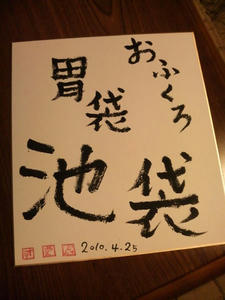 おふくろ
胃袋
池袋
2010.4.25